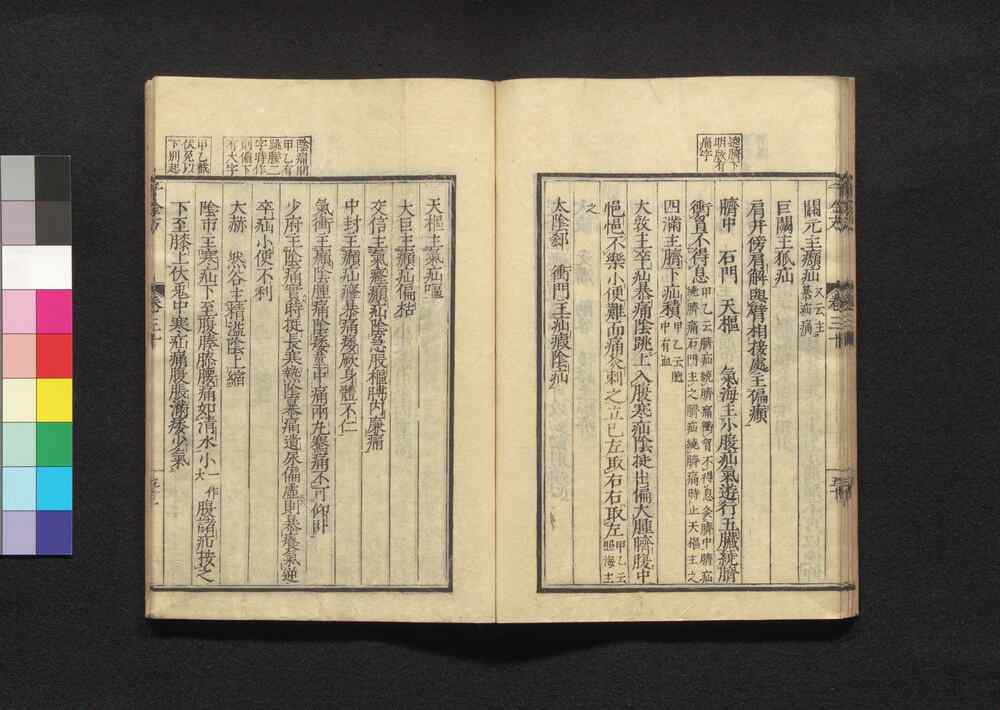 關元主癲疝又云主暴疝痛
巨闕主狐疝
肩井傍肩解與臂相接處主偏癲
臍中 石門 天樞 氣海主小腹疝氣遊行五臟繞臍
衝胷不得息甲乙云臍疝繞臍痛衝胷不得息灸臍中臍疝繞臍痛石門主之臍疝繞臍痛時止天樞主之
四滿主臍下疝積甲乙云胞中有血
大敦主卒疝暴痛陰跳上入股寒疝陰挺出偏大腫臍腹中
悒悒不樂小便難而痛灸刺之立已左取右右取左甲乙云照海主
之
太陰郄 衝門主疝瘕陰疝
遶臍下明版有痛字
天樞主氣疝嘔
大巨主癲疝偏枯
交信主氣癃癲疝陰急股樞膊內廉痛
中封主癲疝癃暴痛痿厥身體不仁
氣衝主癲陰腫痛陰痿莖中痛兩丸騫痛不可仰臥
少府主陰痛實時挺長寒熱陰暴痛遺尿偏虛則暴癢氣逆
卒疝小便不利
大赫 然谷主精溢陰上縮
陰市主寒疝下至腹膝膝腰痛如清水小一作大腹諸疝按之
下至膝上伏兎中寒疝痛腹脹滿痿少氣
甲乙有
字時作
有大字
甲乙
伏兎以
下別起
卷三十